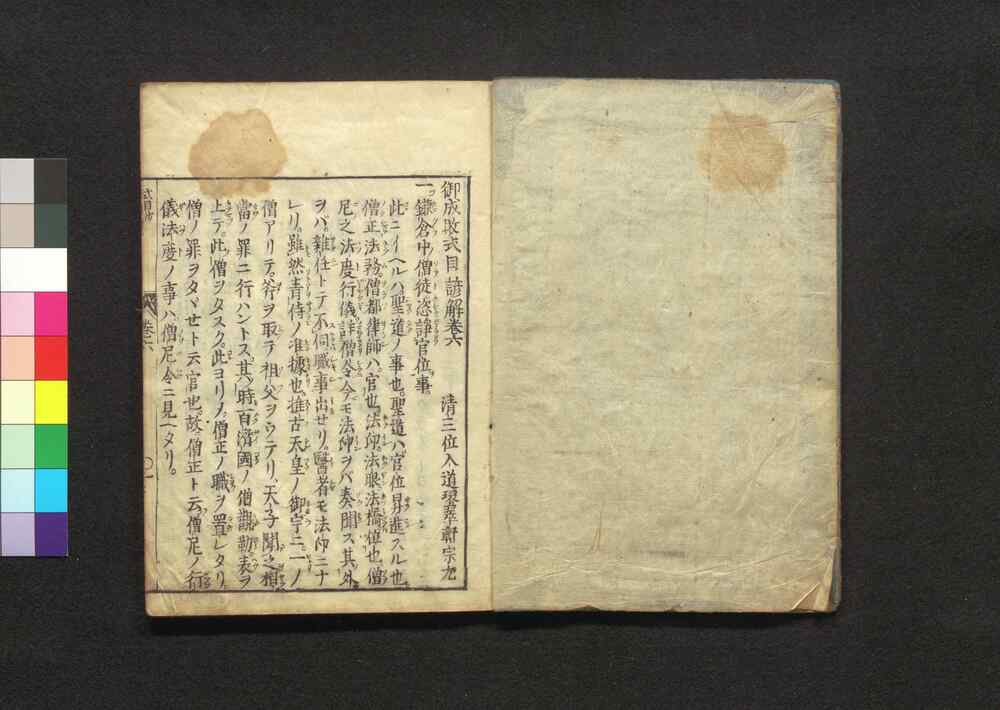 御成敗式目諺解巻六　清三位入道環翠軒宗尤
一鎌倉中僧徒恣諍官位事
此ニイヘルハ聖道ノ事也。聖道ハ官位昇進スル也
僧正法務。僧都律師ハ官也。法印法眼法橋位也。僧
尼之法度行儀詳僧令今モ法印ヲバ奏聞ス其外
ヲバ。雜任トテ不伺職事出セリ。醫者モ法印ニナ
レリ。雖然青侍ノ准據也。推古天皇ノ御宇ニ一ノ
僧アリテ。斧ヲ取テ祖父ヲウテリ、天子聞之相
當ノ罪ニ行ハントス。其時百濟國ノ僧觀勒表ヲ
上テ。此僧ヲタスク。此ヨリメ。僧正ノ職ヲ置レタリ
僧ノ罪ヲタヾセト云官也。故ニ僧正ト云。僧尼ノ行
儀法度ノ事ハ僧尼令ニ見ヘタリ。
巻六